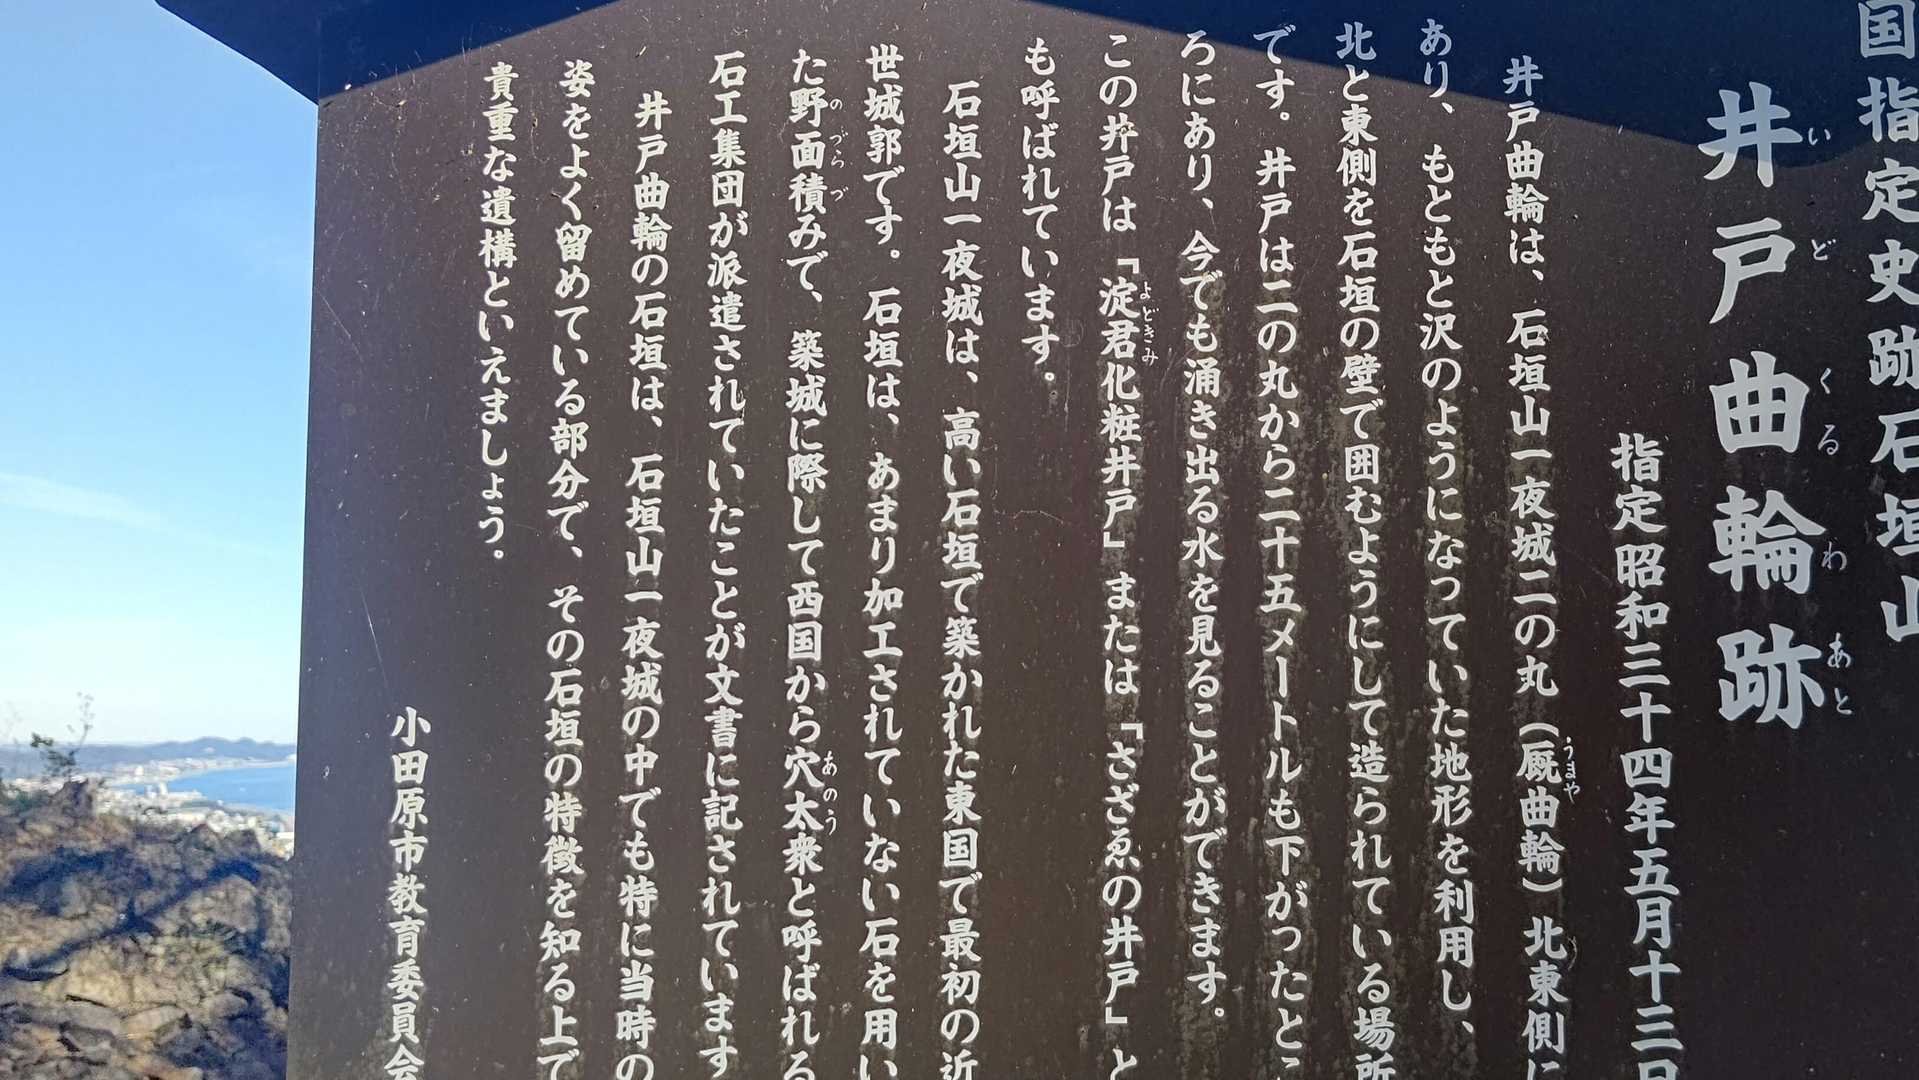 国指定史跡石垣山
井戸曲輪跡
いどくるわあと
指定昭和三十四年五月十三日
井戸曲輪は、石垣山一夜城二の丸（厩曲輪）北東側に
うまや
あり、もともと沢のようになっていた地形を利用し、
北と東側を石垣の壁で囲むようにして造られている場所
です。井戸は二の丸から二十五メートルも下がったとこ
ろにあり、今でも涌き出る水を見ることができます。
この井戸は「淀君化粧井戸」または「さざゑの井戸」と
よどきみ
も呼ばれています。
石垣山一夜城は、高い石垣で築かれた東国で最初の近
世城郭です。石垣は、あまり加工されていない石を用い
た野面積みで、築城に際して西国から穴太衆と呼ばれる
のづらづ
あのう
石工集団が派遣されていたことが文書に記されています
井戸曲輪の石垣は、石垣山一夜城の中でも特に当時の
姿をよく留めている部分で、その石垣の特徴を知る上で
貴重な遺構といえましょう。
小田原市教育委員会